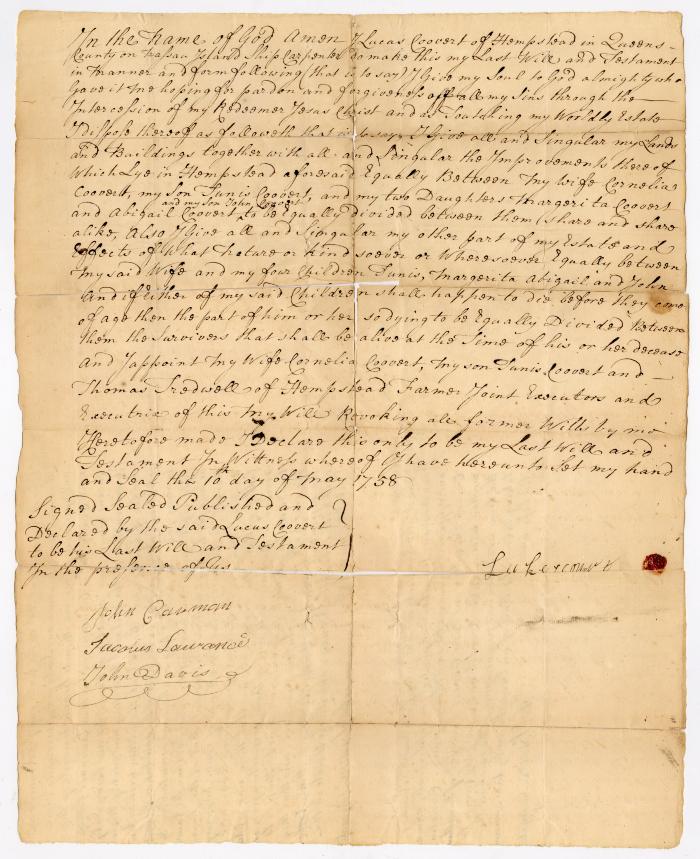 In the Name of God Amen I Lucas Coovert of Hempstead in Queens-
County on Nassau Island Ship Carpenter do make this my Last Will and Testament
in Manner and form following that is to say I Give my Soul to God almighty who
Gave it me hoping for pardon and forgiveness off all my Sins through the
Intercession of my Redeemer Jesus Christ and as Soutching my Worldly Estate
I dispose thereof as followeth that is to say I Give all and Singular my Lands
and Buildings together with all and Singular the Improvements there of
Which Lye in Hempstead aforesaid Equally Between my Wife Cornelia
Coovert, my Son Tunis Coovert, and my two Daughters Margerita Coovert
and my Son John Coovert
and Abigail Coovert to be Equally divided between them (share and share
alike, Also I Give all and Singular my other part of my Estate and
Effects of What Nature or Kind soever or Wheresoever Equally between
my said Wife and my four Children Tunis, Margerita Abigail and John
And if Either of my said Children shall happen to die before they come
of age then the part of him or her so dying to be Equally Divided Between
them the Survivers that shall be alive at the Time of his or her decease
And I appoint my Wife Cornelia Coovert, my son Tunis Coovert and
Thomas Tredwell of Hempstead Farmer Joint Executors and
Executrix of this my Will Revoking all former Wills by me
Heretofore made I Declare this only to be my Last Will and
Testament In Wittness whereof I have hereunto Set my hand
and Seal this 10th day of May 1758
Signed Sealed Published and
Declared by the said Lucas Coovert
to be his Last Will and Testament
In the presence of Us
Lukes
John Carman
Laurance
John Davis